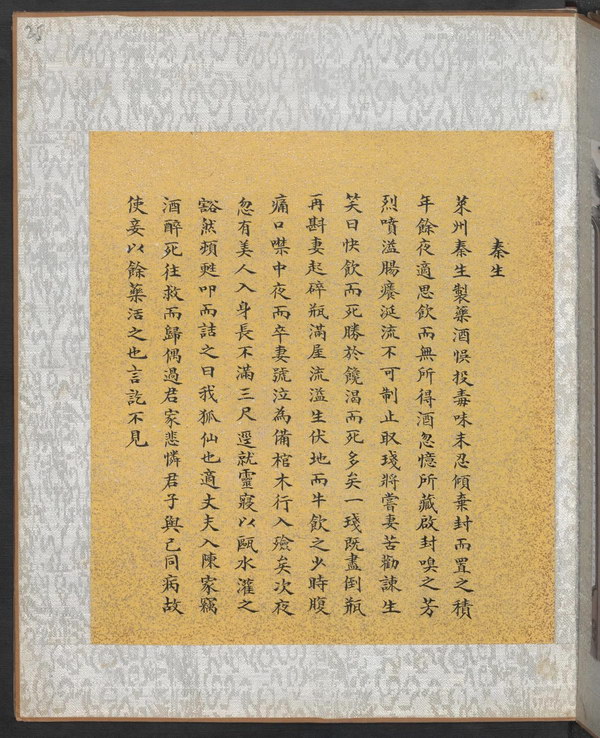 秦生
萊州秦生製藥酒悞投毒味未忍傾棄封而置之積
年餘夜適思飲而無所得酒忽憶所藏啟封嗅之芳
烈噴溢腸癢涎流不可制止取琖將嘗妻苦勸諫生
笑曰快飲而死勝於饞渴而死多矣一琖既盡倒瓶
再斟妻起碎瓶滿屋流溢生伏地而牛飲之少時腹
痛口噤中夜而卒妻號泣為備棺木行入殮矣次夜
忽有美人入身長不滿三尺逕就靈寢以甌水灌之
豁然頓甦叩而詰之曰我狐仙也適丈夫入陳家竊
酒醉死往救而歸偶過君家悲憐君子與己同病故
使妾以餘藥活之也言訖不見